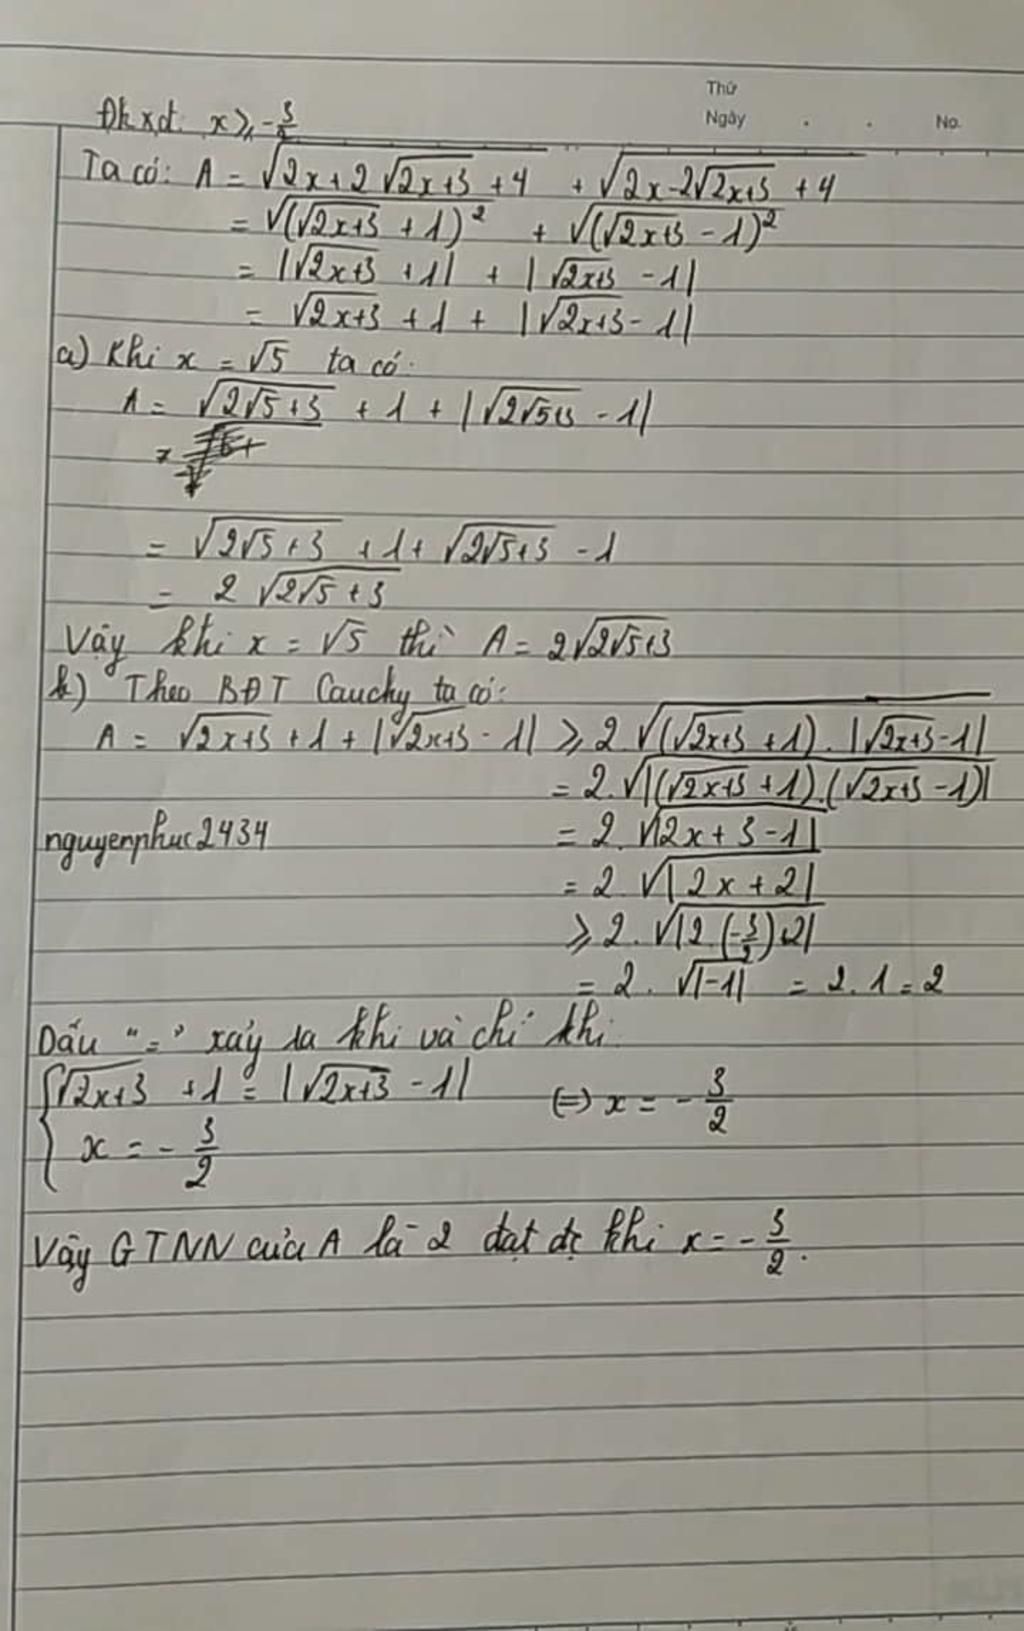 Thứ
Ngày . . No.
Đkxđ: x ≥ -3/2
Ta có: A = √(2x+2√(2x+3)+4) + √(2x-2√(2x+3)+4)
= √((√(2x+3)+1)²) + √((√(2x+3)-1)²)
= |√(2x+3)+1| + |√(2x+3)-1|
= √(2x+3)+1+|√(2x+3)-1|
a) Khi x = √5 ta có:
A = √(2√5+3) + 1 + |√(2√5+3) - 1|
= √(2√5+3) + 1 + √(2√5+3) - 1
= 2√(2√5+3)
Vậy khi x = √5 thì A = 2√(2√5+3)
b) Theo BĐT Cauchy ta có:
A = √(2x+3)+1+|√(2x+3)-1| ≥ 2.√((√(2x+3)+1).|√(2x+3)-1|)
= 2.√|(√(2x+3)+1).(√(2x+3)-1)|
nguyenphuc2434 = 2.√|2x+3-1|
= 2.√|2x+2|
≥ 2.√|2.(-3/2)+2|
= 2.√|-1| = 2.1=2
Dấu "=" xảy ra khi và chỉ khi:
{√(2x+3) +1 = |√(2x+3) -1|
x = -3/2 (=) x = -3/2
Vậy GTNN của A là 2 đạt đc khi x = -3/2.